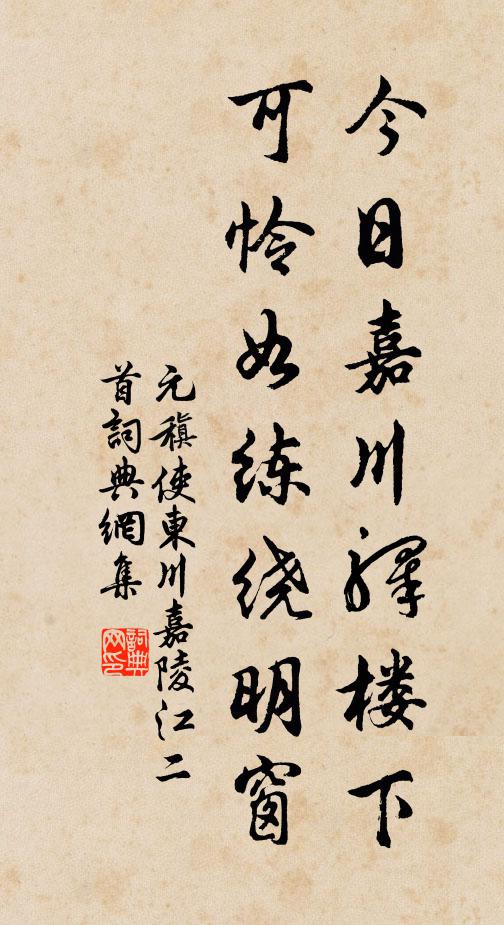 今日嘉川驿楼下
可怜如练绕明窗
元稹使東川嘉陵江二
首詞典網集
詞典网印